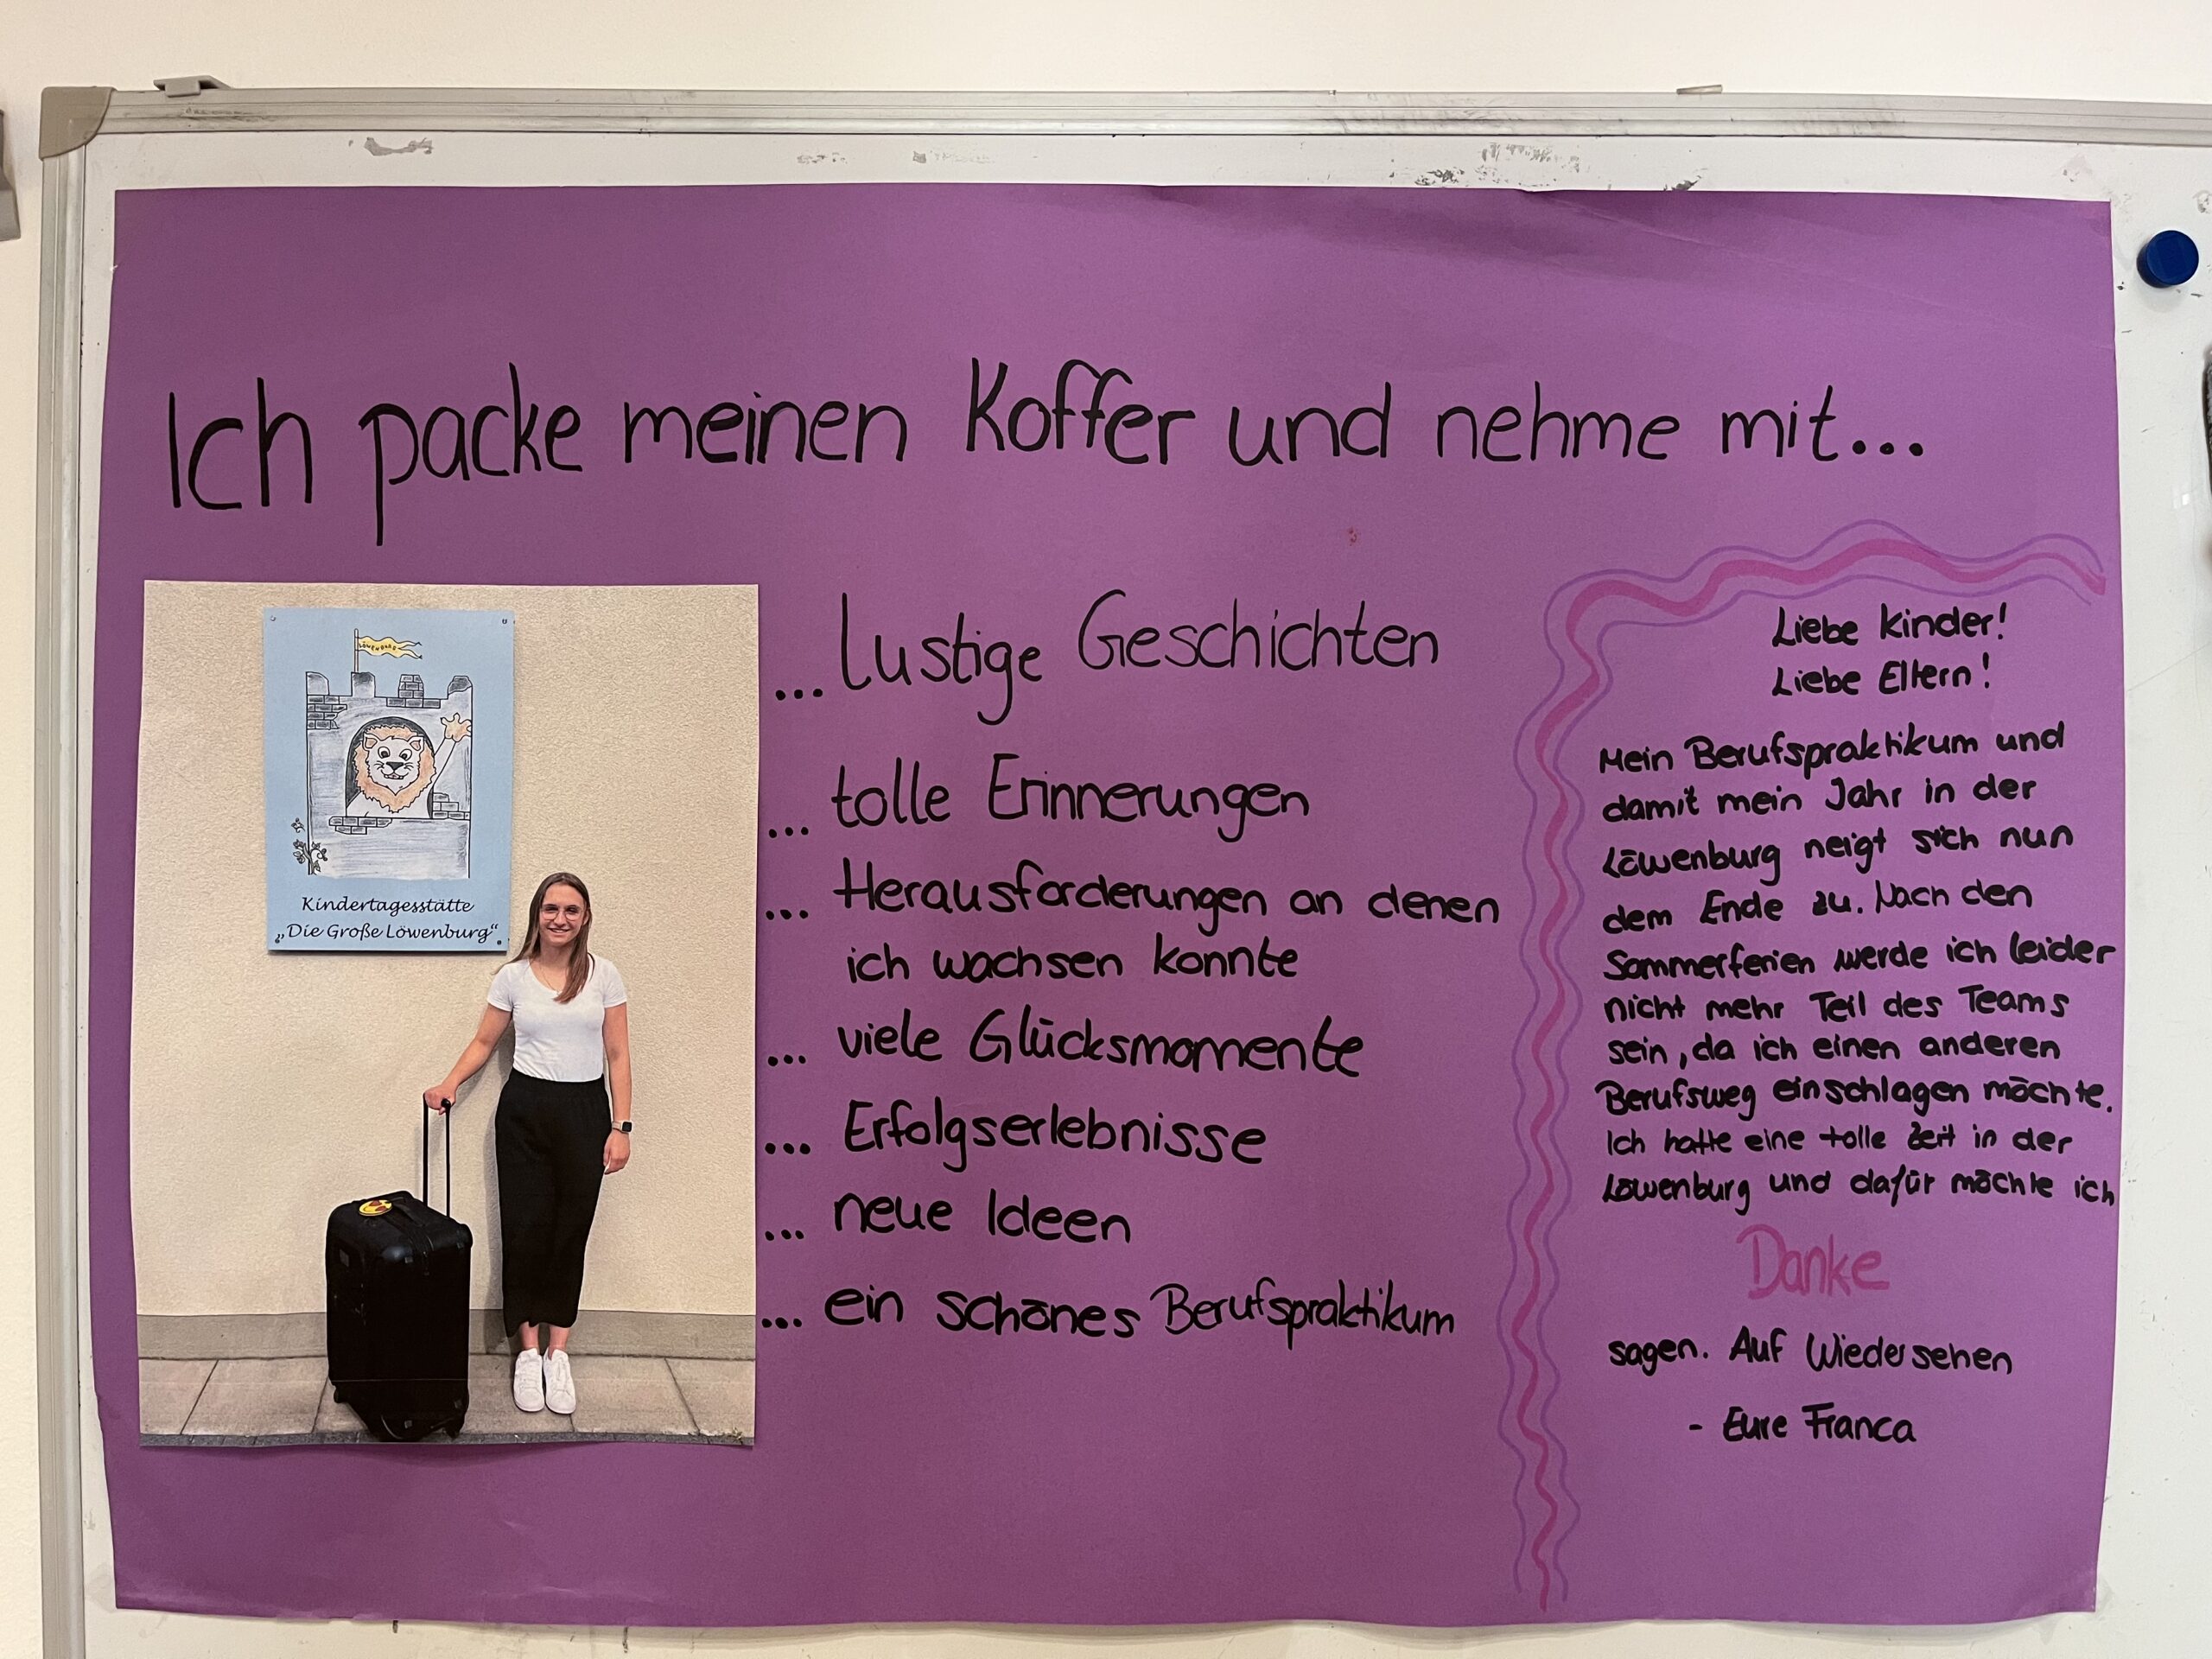 Ich packe meinen Koffer und nehme mit...
LÖWENBURG
Kindertagesstätte
„Die Große Löwenburg“
... lustige Geschichten
... tolle Erinnerungen
... Herausforderungen an denen
ich wachsen konnte
... viele Glücksmomente
... Erfolgserlebnisse
... neue Ideen
... ein schönes Berufspraktikum
Liebe Kinder!
Liebe Eltern!
Mein Berufspraktikum und
damit mein Jahr in der
Löwenburg neigt sich nun
dem Ende zu. Nach den
Sommerferien werde ich leider
nicht mehr Teil des Teams
sein, da ich einen anderen
Berufsweg einschlagen möchte.
Ich hatte eine tolle Zeit in der
Löwenburg und dafür möchte ich
Danke
sagen. Auf Wiedersehen
- Eure Franca